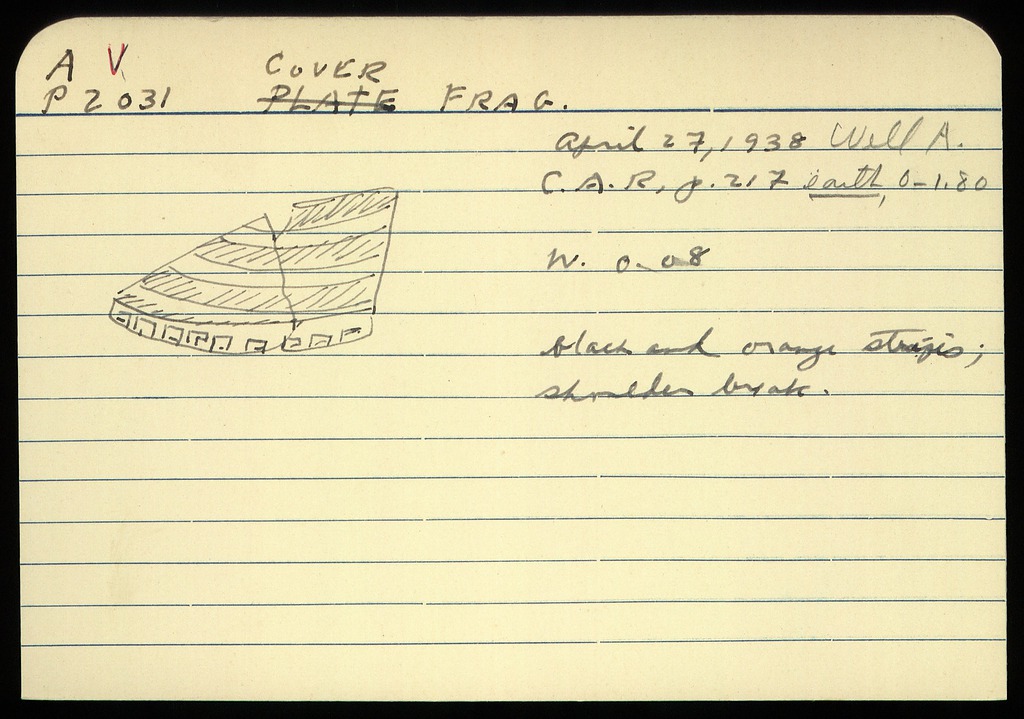 A V
P 2031
COVER
PLATE FRAG.
April 27, 1938 Well A.
C. A. R, p. 217 earth, 0-1.80
W. 0.08
black and orange stripes;
shoulder break.